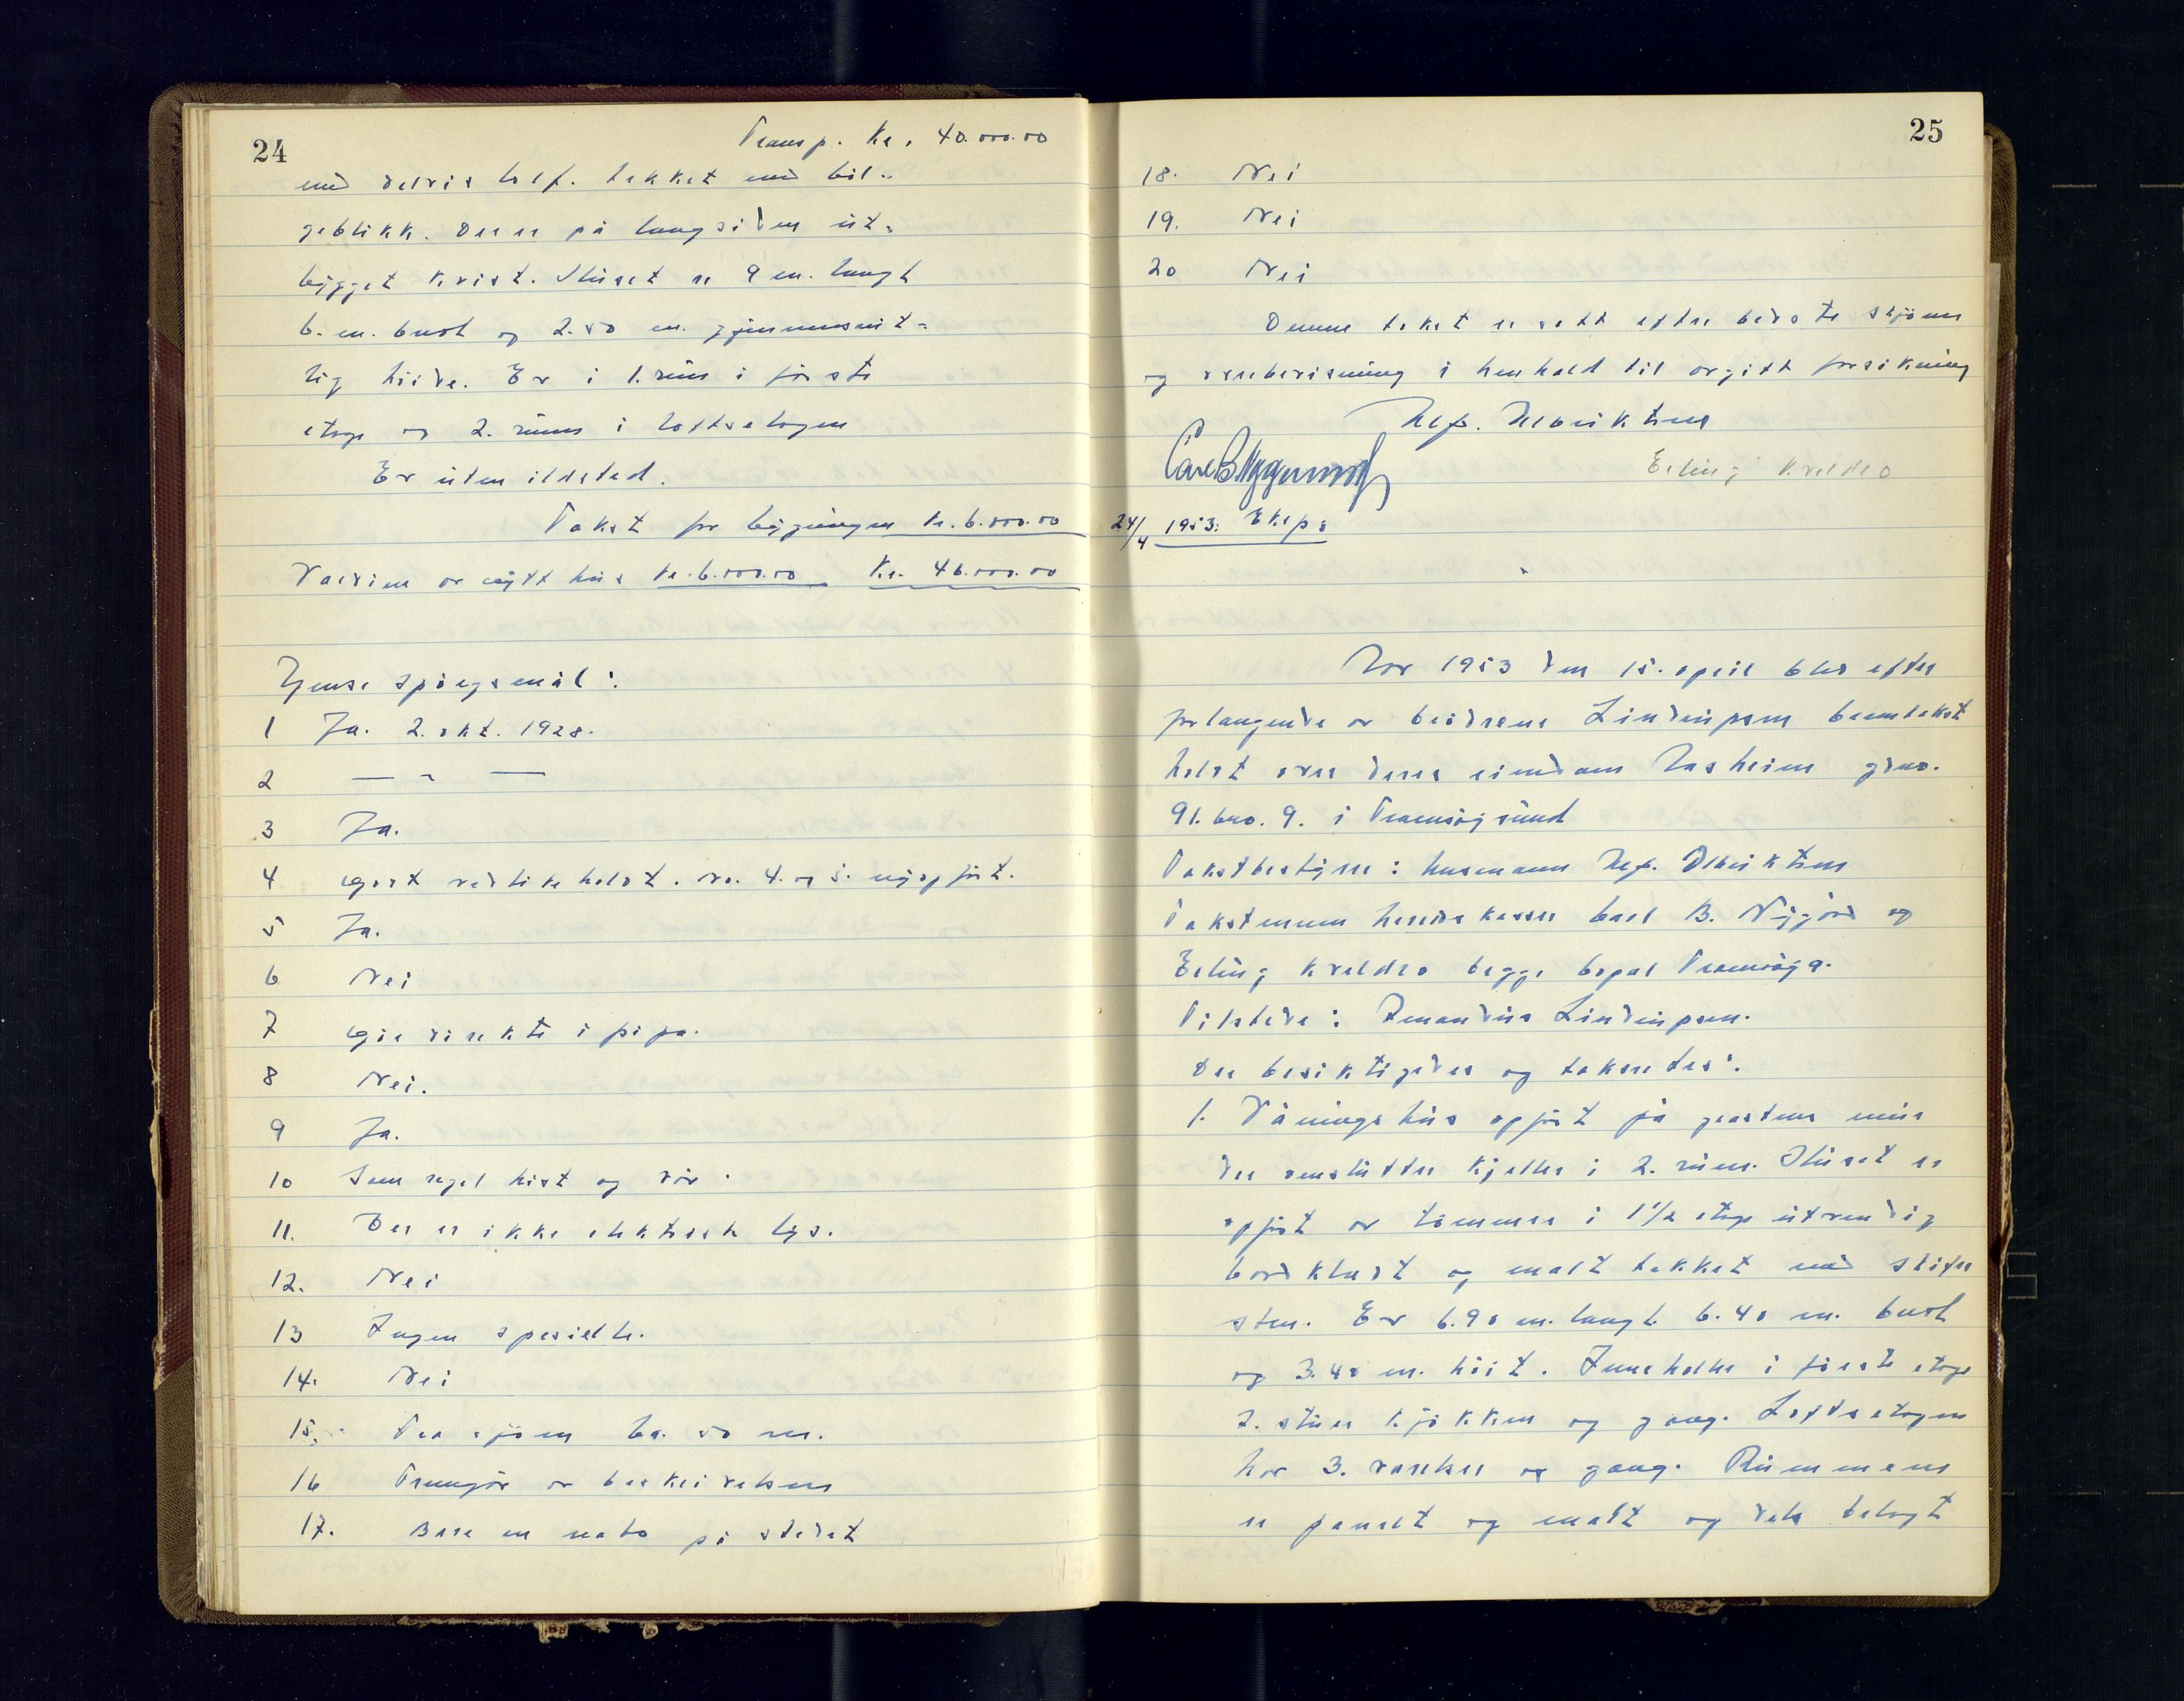 24
Transp. Kr. 40.000.00
med delvis loft. tekket med böl-
geblikk. Der er på langsiden ut-
bygget kvist. Huset er 9 m. langt
6. m. bredt og 2.50 m. gjennemsnit-
lig höide. Er i 1. rum i förste
etage og 2. rums i loftsetagen
Er uten ildsted.
Takst for bygningen kr. 6.000.00
Verdien av nytt hus kr. 6.000.00 Kr. 46.000.00
Gjense spörgsmål:
1 Ja. 2. okt. 1928.
2 — " —
3 Ja.
4 Godt vedlikeholdt. no. 4. og 5. nyopfört.
5 Ja.
6 Nei
7 Går direkte i pipa.
8 Nei.
9 Ja.
10 Som regel hist og der.
11. Der er ikke elektrisk lys.
12. Nei
13 Ingen spesielle.
14. Nei
15. Fra sjöen ca. 50 m.
16 Fremgår av beskrivelsen
17. Bare en nabo på stedet
25
18. Nei
19. Nei
20 Nei
Denne takst er satt efter bedste skjönn
og overbevisning i henhold til avgitt forsikring
Alf. Albriktsen
Carl B. Nygaard
Erling Kveldro
24/4 1953. Eksp.
Aar 1953 den 15. april blev efter
forlangende av brödrene Lindrupsen branntakst
holdt over deres eiendom Aasheim gno.
91. bno. 9. i Tromsøysund
Takstbestyrer: lensmann Alf. Albriktsen
Takstmenn herredskasser Carl B. Nygård og
Erling Kveldro begge bopæl Tromsöya.
Tilstede: Amandus Lindrupsen.
Der besiktigedes og takseredes:
1. Våningshus opfört på grastens mur
der omslutter kjeller i 2. rum. Huset er
opfört av tömmer i 1 1/2 etage utvendig
bordkledt og malt tekket med skifer
sten. Er 6.90 m. langt 6.40 m. bredt
og 3.40 m. höit. Inneholder i förste etage
2. stuer kjökken og gang. Loftsetagen
har 3. værelser og gang. Rummene
er panelt og malt og dels belagt